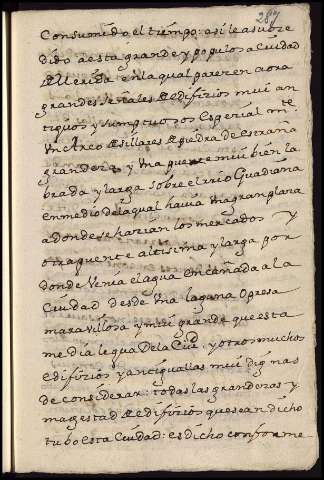 287
Consumido el tiempo: asi le a subce
dido a esta grande y populosa Ciudad
de Merida en la qual pareren aora
grandes señales de edifizios mui an
tiquos y sumptuosos espezial mte
vn Arco de sillares de piedra de estraña
grandeza, y vna puente mui bien la
brada y larga sobre el rrio Guadiana
en medio dela qual havia vna gran plaza
a donde se hazian los mercados y
otra puente altisima y larga por
donde venia el agua encañada a la
Ciudad desde vna laguna o presa
maravillosa y mui grande que esta
media legua dela Ciud. y otros muchos
edifizios y antiguallas mui dignas
de considerar: todas las grandezas y
magestad de edifizios que se an dicho
tubo esta Ciudad: es dicho conforme